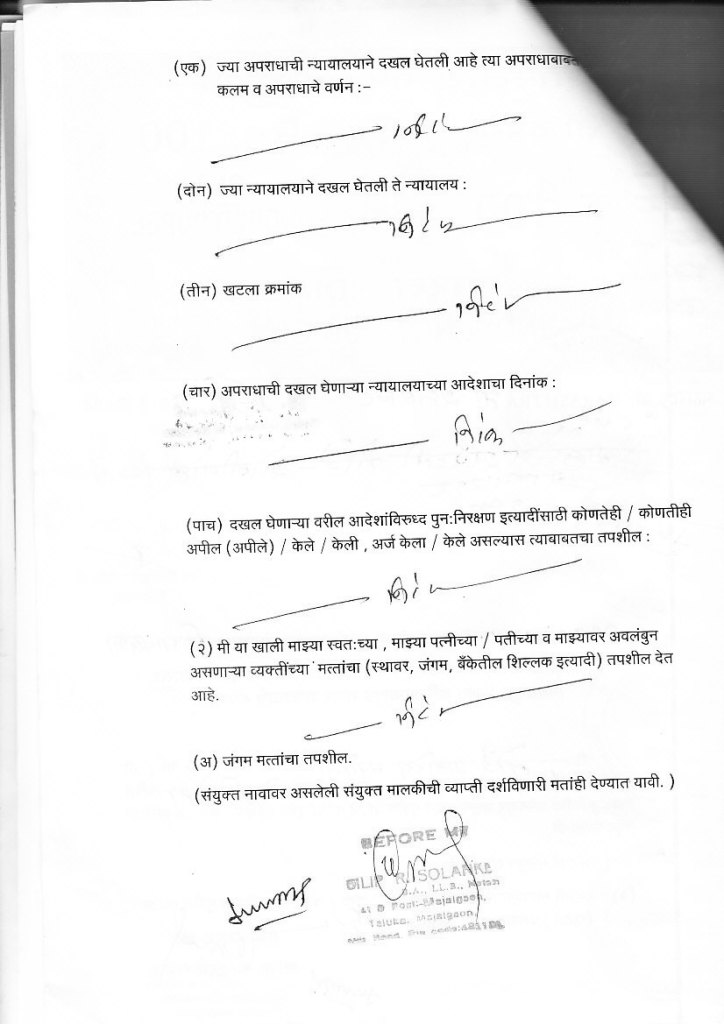 (एक) ज्या अपराधाची न्यायालयाने दखल घेतली आहे त्या
कलम व अपराधाचे वर्णन :-
(दोन) ज्या न्यायालयाने दखल घेतली ते न्यायालय :
(तीन) खटला क्रमांक
(चार) अपराधाची दखल घेणाऱ्या न्यायालयाच्या आदेशाचा दिनांक :
(पाच) दखल घेणाऱ्या वरील आदेशांविरुध्द पुन:निरक्षण इत्यादींसाठी कोणतेही / कोणतीही
अपील (अपीले) / केले / केली , अर्ज केला / केले असल्यास त्याबाबतचा तपशील :
(२) मी या खाली माझ्या स्वत:च्या , माझ्या पत्नीच्या / पतीच्या व माझ्यावर अवलंबुन
असणाऱ्या व्यक्तींच्या मत्तांचा (स्थावर, जंगम, बँकेतील शिल्लक इत्यादी) तपशील देत
आहे.
(अ) जंगम मत्तांचा तपशील.
(संयुक्त नावावर असलेली संयुक्त मालकीची व्याप्ती दर्शविणारी मतांही देण्यात यावी. )
BEFORE ME
DILIP R. SOLANKE
B.A., LL.B.,
Post:-Majalgaon,
Taluka. Majalgaon,